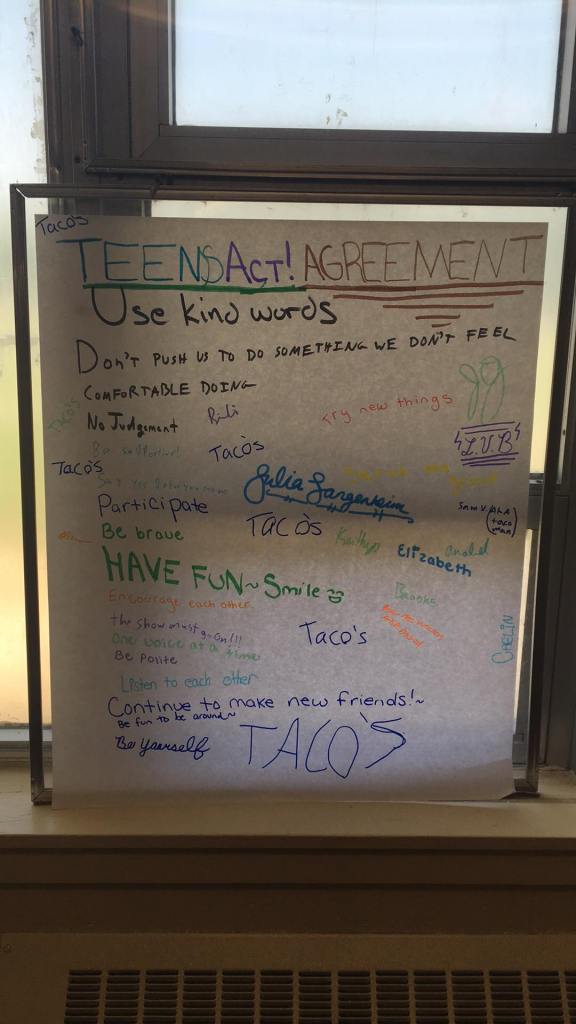 Taco's
TEENSACT! AGREEMENT
Use kind words
DON'T PUSH US TO DO SOMETHING WE DON'T FEEL
COMFORTABLE DOING
Taco's
try new things
No Judgement
Be supportive!
Taco's
L.V.B
Taco's
Julia
Participate
TACO'S
Sam V. (AKA taco man)
Be brave
Kaithyn
Elizabeth
anabel
HAVE FUN~ Smile
Encourage each other
Brooke
the show must go on!!!
Taco's
One voice at a time
Be Polite
Listen to each other
Continue to make new friends!~
Be fun to be around~
Be Yourself
TACO'S